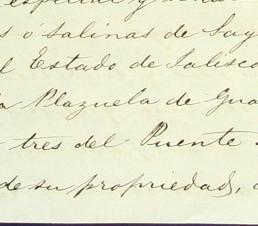 especial y
s ó Salinas de Say
l Estado de Jalisco
a Plazuela de Gua
tres del Puente
de su propriedad,